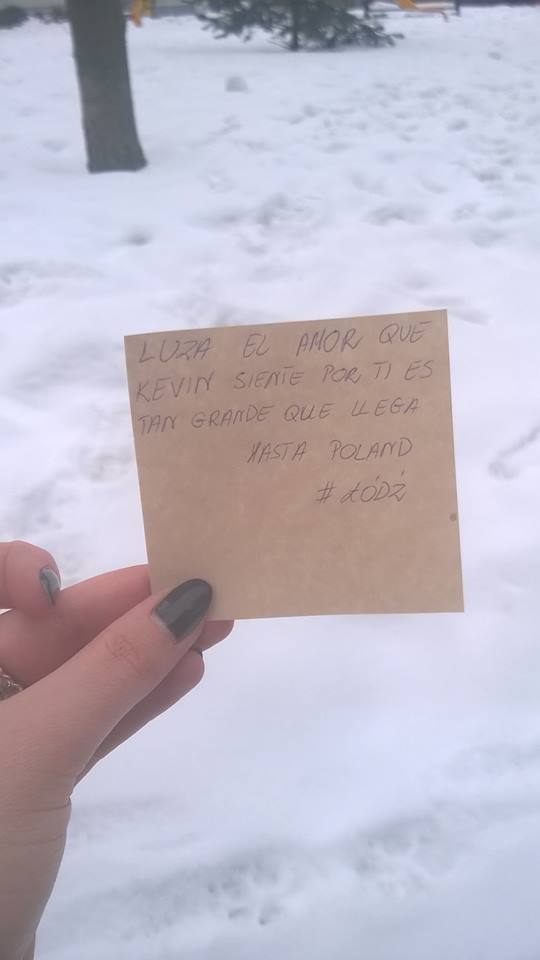 LUZA EL AMOR QUE
KEVIN SIENTE POR TI ES
TAN GRANDE QUE LLEGA
HASTA POLAND
# ŁÓDŹ